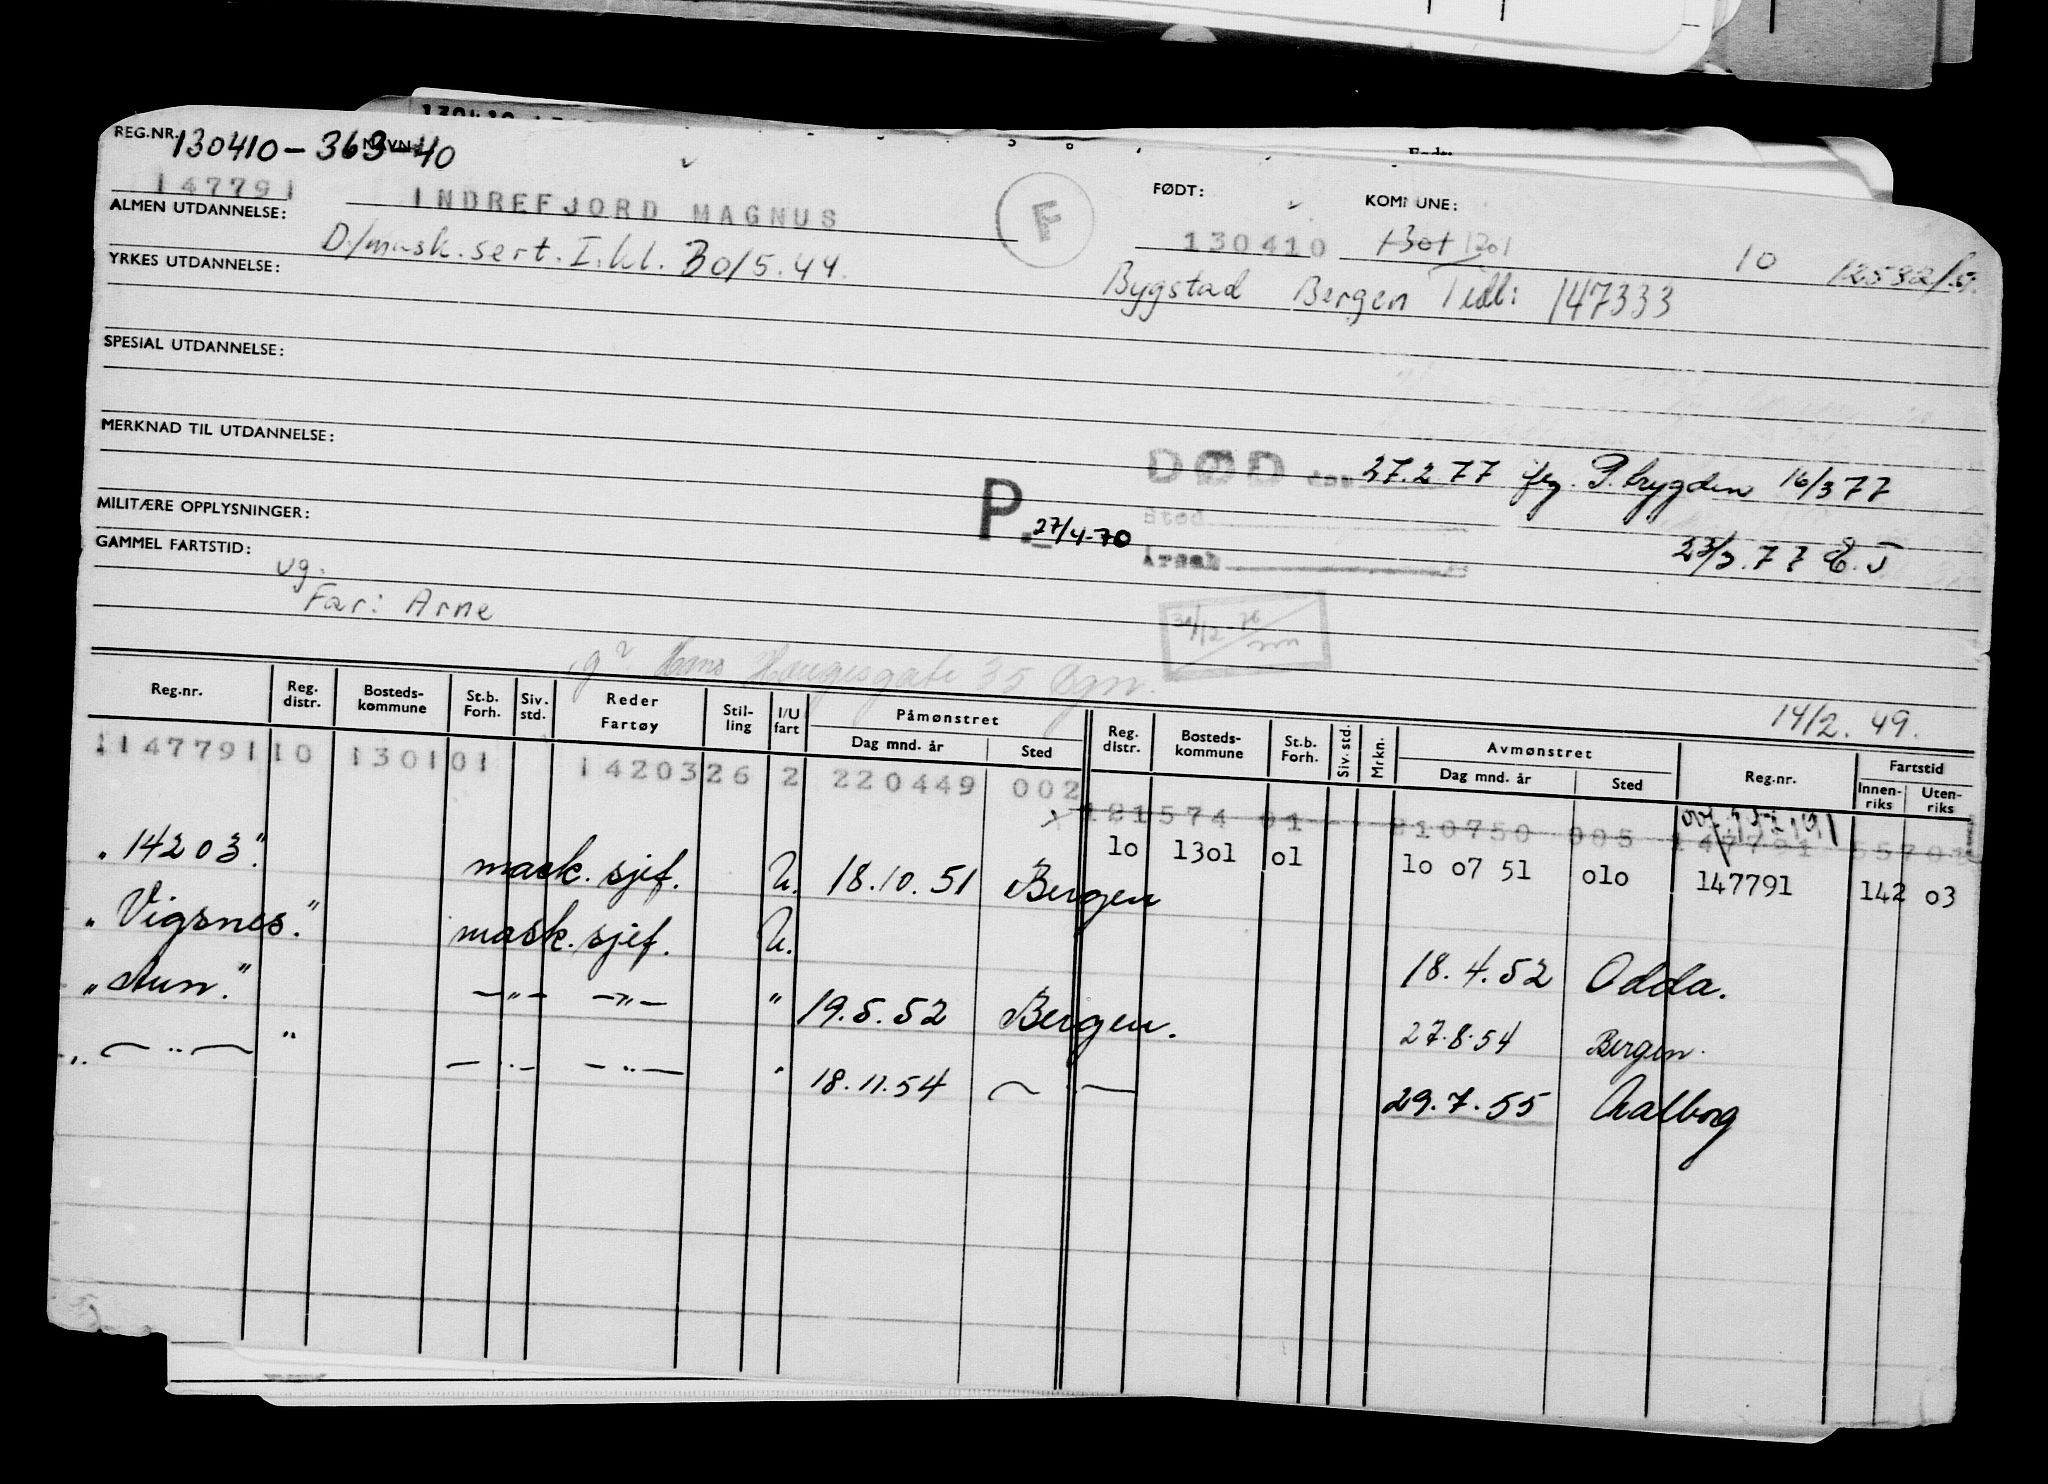 REG.NR. 130410-363-40 NAVN:
147791 INDREFJORD MAGNUS F FØDT: 130410 KOMMUNE: 1301 1201 10 12532/
ALMEN UTDANNELSE: D/mask.sert. I.kl. 30/5.44.
YRKES UTDANNELSE: Bygstad Bergen Tidl: 147333
SPESIAL UTDANNELSE:
MERKNAD TIL UTDANNELSE:
DØD den 27.2 77 16/3 77
MILITÆRE OPPLYSNINGER: P. 27/4-70 Sted
GAMMEL FARTSTID: Årsak 23/3.77 E.J
ug.
Far: Arne 31/12-76
Hans Haugesgate 35 Bgn.
14/2.49.
Reg.nr. Reg. distr. Bosteds-kommune St.b. Forh. Siv. std. Reder Fartøy Stil-ling I/U fart Påmønstret Dag mnd. år Sted Reg. distr. Bosteds-kommune St.b. Forh. Siv. std. Mrkn. Avmønstret Dag mnd. år Sted Reg.nr. Fartstid Innen-riks Uten-riks
114779110 130101 1420326 2 220449 002
121574 01 310750 005 147791
10 1301 01 10 07 51 010 147791 142 03
"14203". mask. sjef. U. 18.10.51 Bergen
"Vigsnes." mask. sjef. U. 18.4.52 Odda.
"Aun." —"— —"— " 19.5.52 Bergen. 27.8.54 Bergen.
" —"— " —"— —"— " 18.11.54 —"— 29.7.55 Aalborg